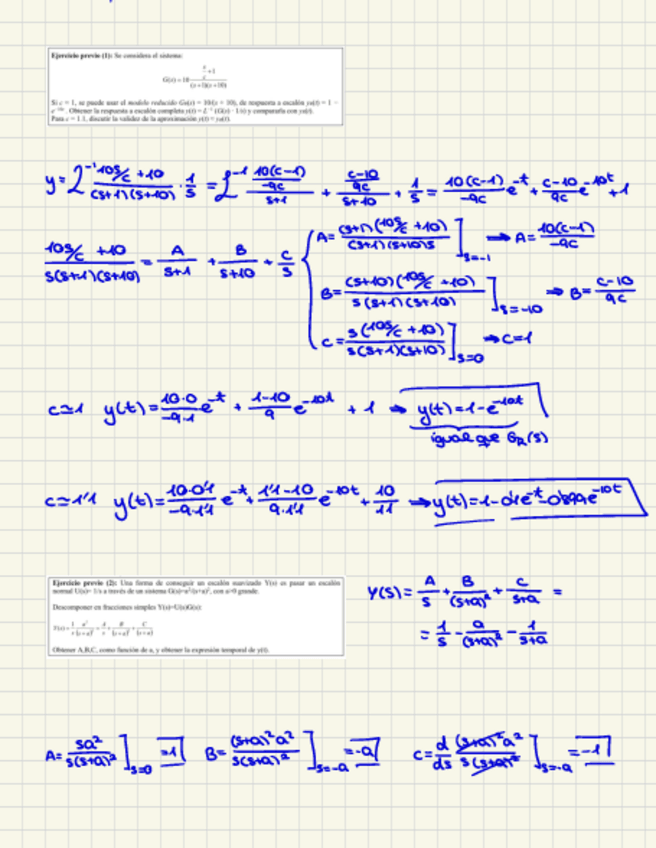 Ejercicio previo (1): Se considera el sistema:
G(s) = 10 (s/c + 1) / ((s+1)(s+10))
Si c = 1, se puede usar el modelo reducido G_R(s) = 10/(s + 10), de respuesta a escalón y_R(t) = 1 −
e^{-10t}. Obtener la respuesta a escalón completa y(t) = L^{-1}(G(s) · 1/s) y compararla con y_R(t).
Para c = 1.1, discutir la validez de la aproximación y(t) ≈ y_R(t).
y = L^{-1} (10s/c + 10)/((s+1)(s+10)) · 1/s = L^{-1} (10(c-1)/-9c)/(s+1) + ((c-10)/9c)/(s+10) + 1/s = 10(c-1)/-9c e^{-t} + (c-10)/9c e^{-10t} + 1
(10s/c + 10)/(s(s+1)(s+10)) = A/(s+1) + B/(s+10) + C/s
A = (s+1)(10s/c + 10)/((s+1)(s+10)s) ]_{s=-1} ⇒ A = 10(c-1)/-9c
B = (s+10)(10s/c + 10)/(s(s+1)(s+10)) ]_{s=-10} ⇒ B = (c-10)/9c
C = s(10s/c + 10)/(s(s+1)(s+10)) ]_{s=0} ⇒ C=1
c≃1 y(t) = 10·0/-9·1 e^{-t} + (1-10)/9 e^{-10t} + 1 ⇒ y(t) = 1 - e^{-10t}
igual que G_R(s)
c≃1'1 y(t) = 10·0'1/-9·1'1 e^{-t} + (1'1-10)/9·1'1 e^{-10t} + 10/11 ⇒ y(t) = 1 - 0'1e^{-t} - 0'899e^{-10t}
Ejercicio previo (2): Una forma de conseguir un escalón suavizado Y(s) es pasar un escalón
normal U(s)= 1/s a través de un sistema G(s)=a²/(s+a)², con a>0 grande.
Descomponer en fracciones simples Y(s)=U(s)G(s):
Y(s) = 1/s a²/(s+a)² = A/s + B/(s+a)² + C/(s+a)
Obtener A,B,C, como función de a, y obtener la expresión temporal de y(t).
Y(s) = A/s + B/(s+a)² + C/(s+a) =
= 1/s - a/(s+a)² - 1/(s+a)
A = sa²/(s(s+a)²) ]_{s=0} = 1 B = (s+a)²a²/(s(s+a)²) ]_{s=-a} = -a C = d/ds (s+a)²a²/(s(s+a)²) ]_{s=-a} = -1